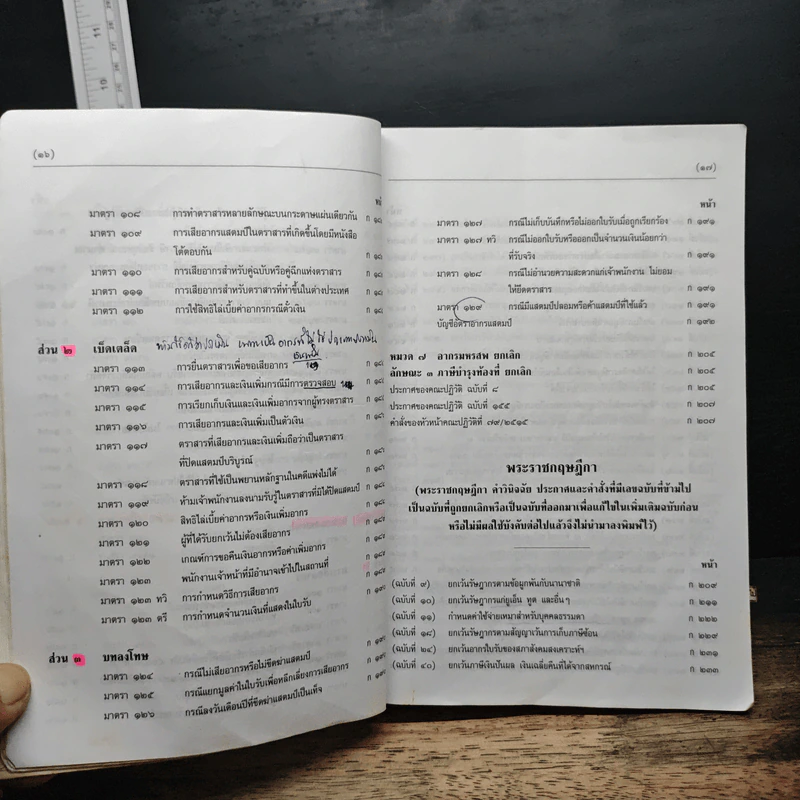 (๑๖)
มาตรา ๑๐๘ การทำตราสารหลายลักษณะบนกระดาษแผ่นเดียวกัน ก ๑๘
มาตรา ๑๐๙ การเสียอากรแสตมป์ในตราสารที่เกิดขึ้นโดยมีหนังสือ
โต้ตอบกัน ก ๑๘
มาตรา ๑๑๐ การเสียอากรสำหรับคู่ฉบับหรือคู่ฉีกแห่งตราสาร ก ๑๘
มาตรา ๑๑๑ การเสียอากรสำหรับตราสารที่ทำขึ้นในต่างประเทศ ก ๑๘
มาตรา ๑๑๒ การใช้สิทธิไล่เบี้ยค่าอากรกรณีตั๋วเงิน ก ๑๘
ส่วน ๒ เบ็ดเตล็ด
มาตรา ๑๑๓ การยื่นตราสารเพื่อขอเสียอากร ก ๑๘
มาตรา ๑๑๔ การเสียอากรและเงินเพิ่มกรณีมีการตรวจสอบ ก ๑๘
มาตรา ๑๑๕ การเรียกเก็บเงินและเงินเพิ่มอากรจากผู้ทรงตราสาร ก ๑๘
มาตรา ๑๑๖ การเสียอากรและเงินเพิ่มเป็นตัวเงิน ก ๑๘
มาตรา ๑๑๗ ตราสารที่เสียอากรและเงินเพิ่มถือว่าเป็นตราสาร
ที่ปิดแสตมป์บริบูรณ์ ก ๑๘
มาตรา ๑๑๘ ตราสารที่ใช้เป็นพยานหลักฐานในคดีแพ่งไม่ได้ ก ๑๘
มาตรา ๑๑๙ ห้ามเจ้าพนักงานลงนามรับรู้ในตราสารที่มิได้ปิดแสตมป์ ก ๑๘
มาตรา ๑๒๐ สิทธิไล่เบี้ยค่าอากรหรือเงินเพิ่มอากร
มาตรา ๑๒๑ ผู้ที่ได้รับยกเว้นไม่ต้องเสียอากร
มาตรา ๑๒๒ เกณฑ์การขอคืนเงินอากรหรือค่าเพิ่มอากร
มาตรา ๑๒๓ พนักงานเจ้าหน้าที่มีอำนาจเข้าไปในสถานที่
มาตรา ๑๒๓ ทวิ การกำหนดวิธีการเสียอากร
มาตรา ๑๒๓ ตรี การกำหนดจำนวนเงินที่แสดงในใบรับ
ส่วน ๓ บทลงโทษ
มาตรา ๑๒๔ กรณีไม่เสียอากรหรือไม่ขีดฆ่าแสตมป์
มาตรา ๑๒๕ กรณีแยกมูลค่าในใบรับเพื่อหลีกเลี่ยงการเสียอากร
มาตรา ๑๒๖ กรณีลงวันเดือนปีที่ขีดฆ่าแสตมป์เป็นเท็จ
(๑๗)
หน้า
มาตรา ๑๒๗ กรณีไม่เก็บบันทึกหรือไม่ออกใบรับเมื่อถูกเรียกร้อง ก ๑๙๑
มาตรา ๑๒๗ ทวิ กรณีไม่ออกใบรับหรือออกเป็นจำนวนเงินน้อยกว่า
ที่รับจริง ก ๑๙๑
มาตรา ๑๒๘ กรณีไม่อำนวยความสะดวกแก่เจ้าพนักงาน ไม่ยอม
ให้ยึดตราสาร ก ๑๙๑
มาตรา ๑๒๙ กรณีมีแสตมป์ปลอมหรือค้าแสตมป์ที่ใช้แล้ว ก ๑๙๑
บัญชีอัตราอากรแสตมป์ ก ๑๙๒
หมวด ๗ อากรมหรสพ ยกเลิก ก ๒๐๕
ลักษณะ ๓ ภาษีบำรุงท้องที่ ยกเลิก ก ๒๐๕
ประกาศของคณะปฏิวัติ ฉบับที่ ๘ ก ๒๐๕
ประกาศของคณะปฏิวัติ ฉบับที่ ๑๕๕ ก ๒๐๗
คำสั่งของหัวหน้าคณะปฏิวัติที่ ๗๙/๒๕๑๕ ก ๒๐๗
พระราชกฤษฎีกา
(พระราชกฤษฎีกา คำวินิจฉัย ประกาศและคำสั่งที่มีเลขฉบับที่ข้ามไป
เป็นฉบับที่ถูกยกเลิกหรือเป็นฉบับที่ออกมาเพื่อแก้ไขในเพิ่มเติมฉบับก่อน
หรือไม่มีผลใช้บังคับต่อไปแล้วจึงไม่นำมาลงพิมพ์ไว้)
หน้า
(ฉบับที่ ๙) ยกเว้นรัษฎากรตามข้อผูกพันกับนานาชาติ ก ๒๐๙
(ฉบับที่ ๑๐) ยกเว้นรัษฎากรแก่ยูเอ็น ทูต และอื่นๆ ก ๒๑๑
(ฉบับที่ ๑๑) กำหนดค่าใช้จ่ายเหมาสำหรับบุคคลธรรมดา ก ๒๒๒
(ฉบับที่ ๑๘) ยกเว้นรัษฎากรตามสัญญาเว้นการเก็บภาษีซ้อน ก ๒๒๙
(ฉบับที่ ๒๔) ยกเว้นอากรใบรับของสภาสังคมสงเคราะห์ฯ ก ๒๓๑
(ฉบับที่ ๔๐) ยกเว้นภาษีเงินปันผล เงินเฉลี่ยคืนที่ได้จากสหกรณ์ ก ๒๓๓